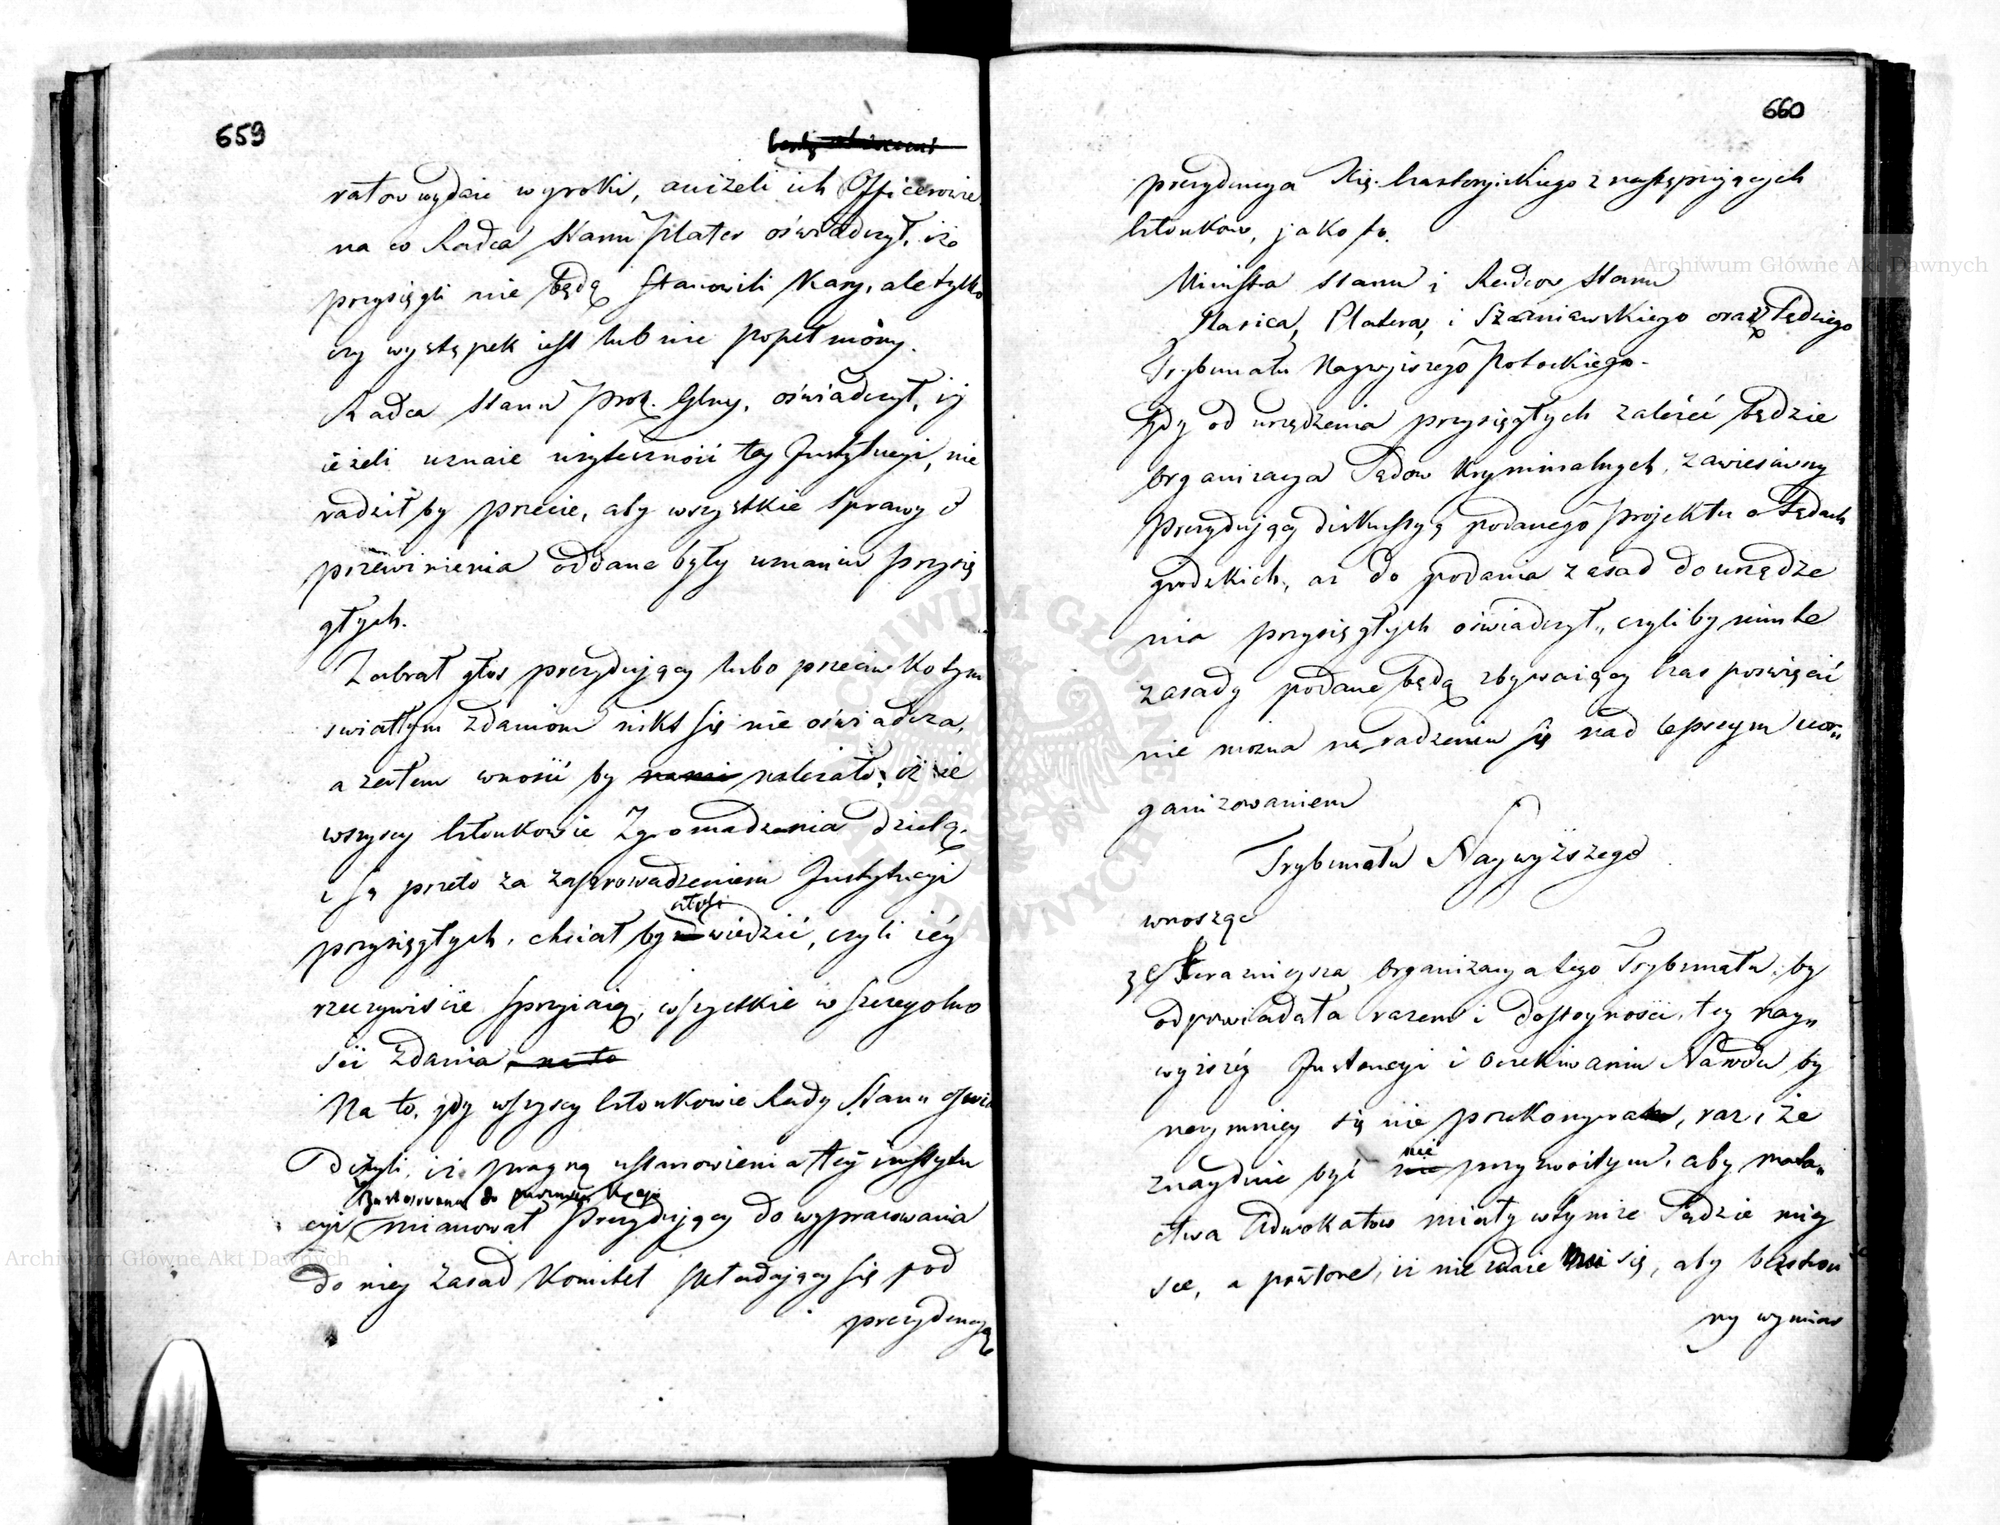 659
ratow wydaie wyroki, aniżeli ich Officerowie
na co Radca Stanu Plater oświadczył, iże
przysięgli nie będą stanowili kary, ale tylko
czy występek iest lub nie popełniony.
Radca Stanu Prok. Glny. oświadczył, iż
ieżeli uznaie użyteczność tey Instytucyi, nie
radził by przecie, aby wszystkie sprawy o
przewinienia oddane były uznaniu przysię
głych.
Zabrał głos prezydujący lubo przeciwko tym
swiatłym zdaniom nikt się nie oświadcza,
a zatem wnosić by należało, iż ie
wszyscy Członkowie Zgromadzenia dzielą.
i są przeto za zaprowadzeniem Instytucyi
przysięgłych, chciał by wiedzić, czyli iéy
rzeczywiście sprzyiaią, wszystkie w szczególno
ści zdania
Na to, gdy wszyscy Członkowie Rady Stanu oświa
dczyli, iż pragną ustanowienia tey instytu
cyi, mianował Prezydujący do wypracowania
do niey zasad Komitet składający się pod
prezydencyą
660
prezydencya Xię. Czartoryskiego z następujących
Członkow, jako to.
Ministra Stanu i Radcow Stanu
Stasica, Platera, i Szaniawskiego oraz Sędziego
Trybunału Naywyższego Potockiego.
Gdy od urządzenia przysięgłych zależeć będzie
organizacya Sądow Kryminalnych, zawiesiwszy
Prezydujący diskussyą podanego projektu o Sądach
grodzkich, aż do podania zasad do urządze
nia przysięgłych oświadczył, czyliby nim te
zasady podane będą zbywaiący czas poświęcić
nie można naradzeniu się nad lepszym uor„
ganizowaniem
Trybunału Naywyższego
wnosząc
że teraznieysza organizacya tego Trybunału, by
odpowiadała razem i dostoyności, tey nay„
wyższéy Instancyi i oczekiwaniu Narodu by
naymniey się nie przekonywa, raz, że
znayduie być nie przyzwoitym, aby
ctwa Adwokatow miały w tymże Sądzie miey
sce, a powtore, iż nie zdaie się, aby bezstron
ny wymiar
Archiwum Główne Akt Dawnych
Archiwum Główne Akt Dawnych